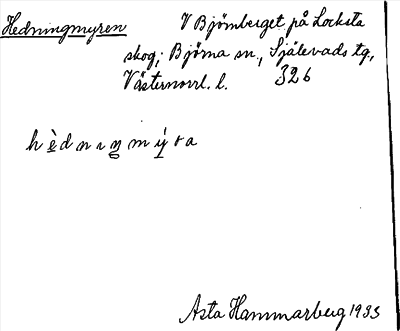 Hedningmyren V Björnberget på Locksta
skog; Björna sn., Själevads tg.,
Västernorrl. l. 326
hèdnıŋmýra
Asta Hammarberg 1935